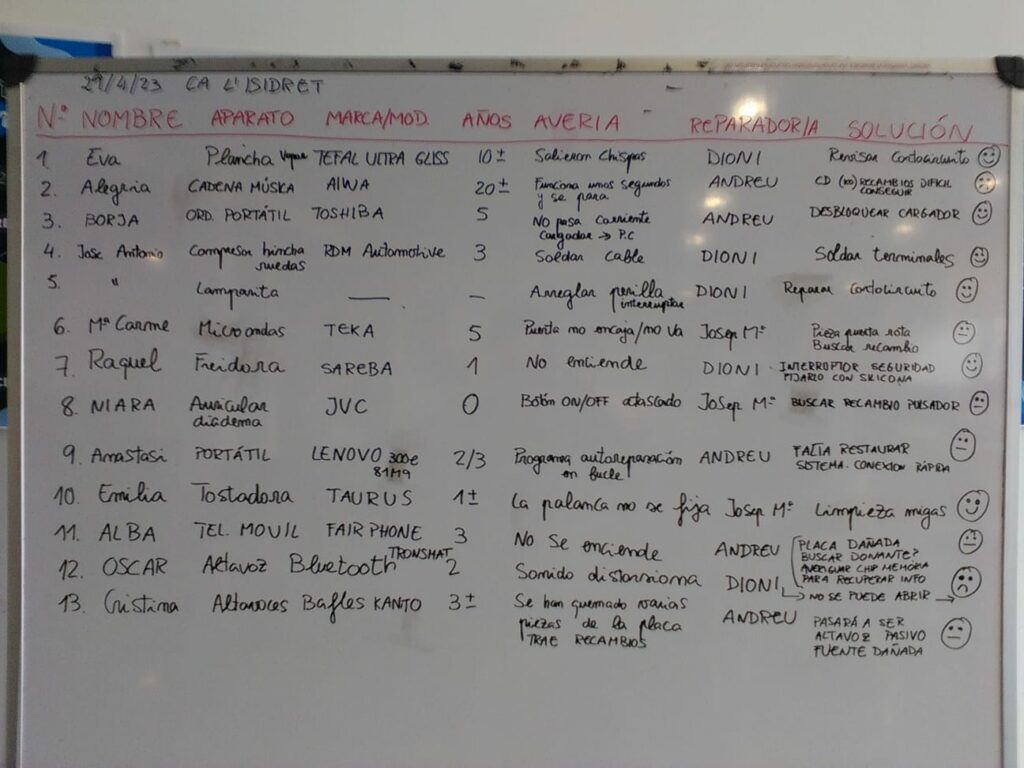 29/4/23 CA L'ISIDRET
Nº NOMBRE APARATO MARCA/MOD. AÑOS AVERIA REPARADOR/A SOLUCIÓN
1. Eva Plancha Vapor TEFAL ULTRA GLISS 10± Salieron chispas DIONI Revisar Cortocircuito
2. Alegria CADENA MÚSICA AIWA 20± Funciona unos segundos y se para ANDREU CD (NO) RECAMBIOS DIFICIL CONSEGUIR
3. BORJA ORD. PORTÁTIL TOSHIBA 5 NO pasa corriente cargador → P.C ANDREU DESBLOQUEAR CARGADOR
4. Jose Antonio Compresor hincha ruedas RDM Automotive 3 Soldar cable DIONI Soldar terminales
5. " Lamparita — — Arreglar perilla interruptor DIONI Reparar Cortocircuito
6. Mª Carme Microondas TEKA 5 Puerta no encaja/no va Josep Mª Pieza puerta rota Buscar recambio
7. Raquel Freidora SAREBA 1 No enciende DIONI · INTERRUPTOR SEGURIDAD FIJARLO CON SILICONA
8. NIARA Auricular diadema JVC 0 Botón ON/OFF atascado Josep Mª BUSCAR RECAMBIO PULSADOR
9. Anastasi PORTÁTIL LENOVO 300e 81M9 2/3 Programa autoreparación en bucle ANDREU FALTA RESTAURAR SISTEMA. CONEXION RÁPIDA
10. Emilia Tostadora TAURUS 1± La palanca no se fija Josep Mª Limpieza migas
11. ALBA TEL. MOVIL FAIRPHONE 3 No Se enciende ANDREU PLACA DAÑADA BUSCAR DONANTE? AVERIGUAR CHIP MEMORIA PARA RECUPERAR INFO
12. OSCAR Altavoz Bluetooth TRONSMAT 2 Sonido distorsiona DIONI → NO SE PUEDE ABRIR →
13. Cristina Altavoces Bafles KANTO 3± Se han quemado varias piezas de la placa TRAE RECAMBIOS ANDREU PASARÁ A SER ALTAVOZ PASIVO FUENTE DAÑADA